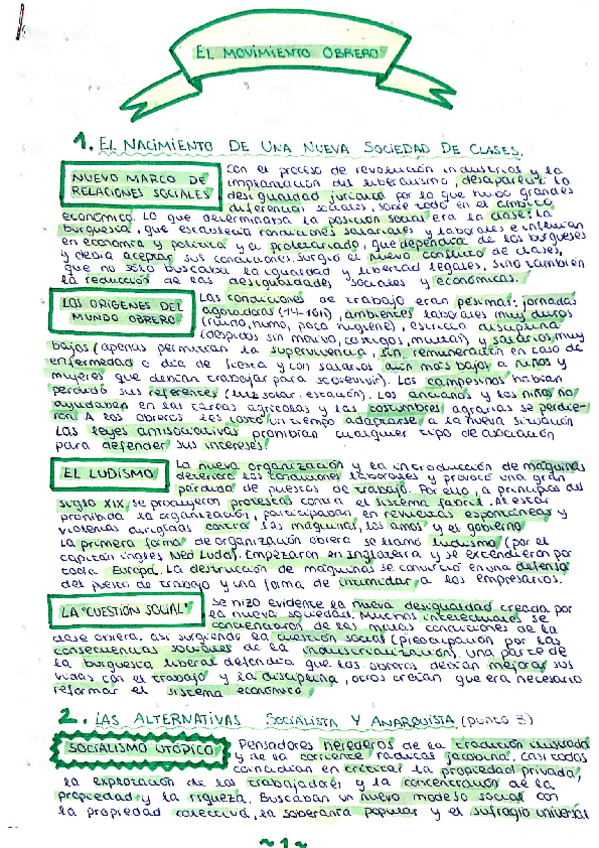 EL MOVIMIENTO OBRERO
1. EL NACIMIENTO DE UNA NUEVA SOCIEDAD DE CLASES.
NUEVO MARCO DE RELACIONES SOCIALES
Con el proceso de revolución industrial y la
implantación del liberalismo, desapareció la
desigualdad jurídica por lo que hubo grandes
diferencias sociales, sobre todo en el ámbito
económico. Lo que determinaba la posición social era la clase: la
burguesía, que establecía condiciones salariales y laborales e influían
en economía y política y el proletariado, que dependía de los burgueses
y debía aceptar sus condiciones. Surgió el nuevo conflicto de clases,
que no sólo buscaba la igualdad y libertad legales, sino también
la reducción de las desigualdades sociales y económicas.
LOS ORÍGENES DEL MUNDO OBRERO
Las condiciones de trabajo eran pésimas: jornadas
agotadoras (14-16h), ambientes laborales muy duros
(ruido, humo, poca higiene), estricta disciplina
(despidos sin motivo, castigos, multas) y salarios muy
bajos (apenas permitían la supervivencia, sin remuneración en caso de
enfermedad o día de fiesta y con salarios aún más bajos a niños y
mujeres que debían trabajar para sobrevivir). Los campesinos habían
perdido sus referentes (luz solar, estación). Los ancianos y los niños no
ayudaban en las tareas agrícolas y las costumbres agrarias se perdie-
ron. A los obreros les costó un tiempo adaptarse a la nueva situación
Las leyes antisociativas prohibían cualquier tipo de asociación
para defender sus intereses.
EL LUDISMO
La nueva organización y la introducción de máquinas
deterioró las condiciones laborales y provocó una gran
pérdida de puestos de trabajo. Por ello, a principios del
siglo XIX, se produjeron protestas contra el sistema fabril. Al estar
prohibida la organización, participaban en revueltas espontáneas y
violentas dirigidas contra las máquinas, los amos y el gobierno
La primera forma de organización obrera se llamó ludismo (por el
capitán inglés Ned Ludd). Empezaron en Inglaterra y se extendieron por
toda Europa. La destrucción de máquinas se convirtió en una defensa
del puesto de trabajo y una forma de intimidar a los empresarios.
LA "CUESTIÓN SOCIAL"
Se hizo evidente la nueva desigualdad creada por
la nueva sociedad. Muchos intelectuales se
concienciaron de las malas condiciones de la
clase obrera, así surgiendo la cuestión social (preocupación por las
consecuencias sociales de la industrialización), una parte de
la burguesía liberal defendía que los obreros debían mejorar sus
vidas con el trabajo y la disciplina, otros creían que era necesario
reformar el sistema económico.
2. LAS ALTERNATIVAS SOCIALISTA Y ANARQUISTA (punto 3)
SOCIALISMO UTÓPICO
Pensadores herederos de la tradición ilustrada
y de la corriente radical jacobina. Casi todos
coincidían en criticar la propiedad privada,
la explotación de los trabajadores y la concentración de la
propiedad y la riqueza. Buscaban un nuevo modelo social con
la propiedad colectiva, la soberanía popular y el sufragio universal
~1~